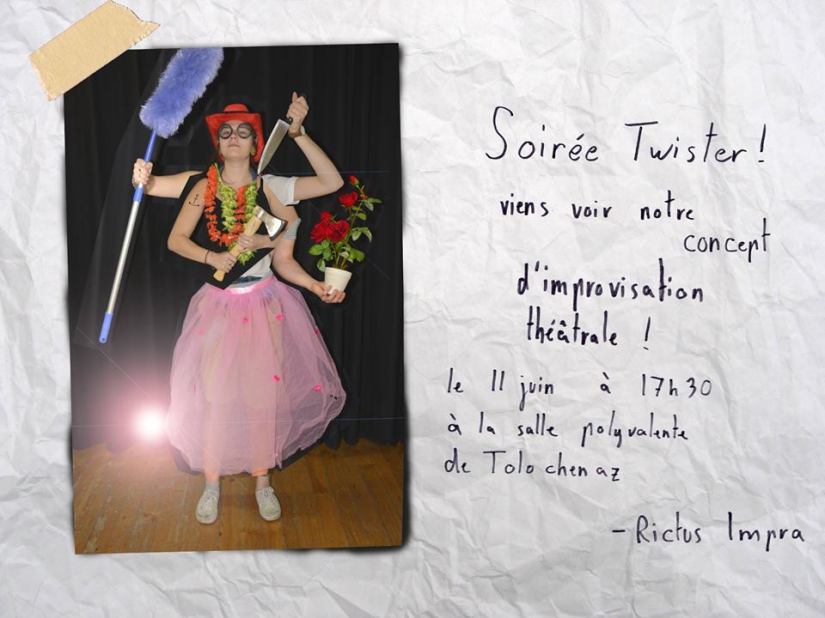 Soirée Twister!
viens voir notre
concept
d'improvisation
théâtrale !
le 11 juin à 17h30
à la salle polyvalente
de Tolochenaz
- Rictus Impra